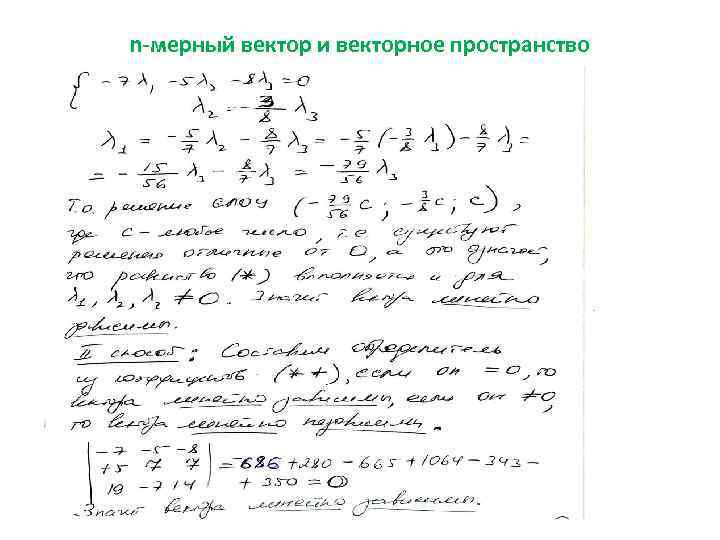 n-мерный вектор и векторное пространство
{ -7λ₁ -5λ₂ -8λ₃=0
λ₂ = -3/8 λ₃
λ₁ = -5/7 λ₂ - 8/7 λ₃ = -5/7 (-3/8 λ₃) - 8/7 λ₃ =
= -15/56 λ₃ - 8/7 λ₃ = -79/56 λ₃
Т.о. решение СЛОУ (-79/56 c ; -3/8 c ; c) ,
где c - любое число, т.е существуют
решения отличные от 0, а это означает,
что равенство (*) выполняется и для
λ₁, λ₂, λ₂ ≠ 0. Значит вектора линейно
зависимы.
II способ: Составим определитель
из коэффициентов (**), если он =0, то
вектора линейно зависимы, если он ≠0,
то вектора линейно независимы.
| -7 -5 -8 |
| +5 7 7 | = -686 +280 - 665 +1064 - 343 -
| 19 -7 14 | + 350 = 0
Значит вектора линейно зависимы.